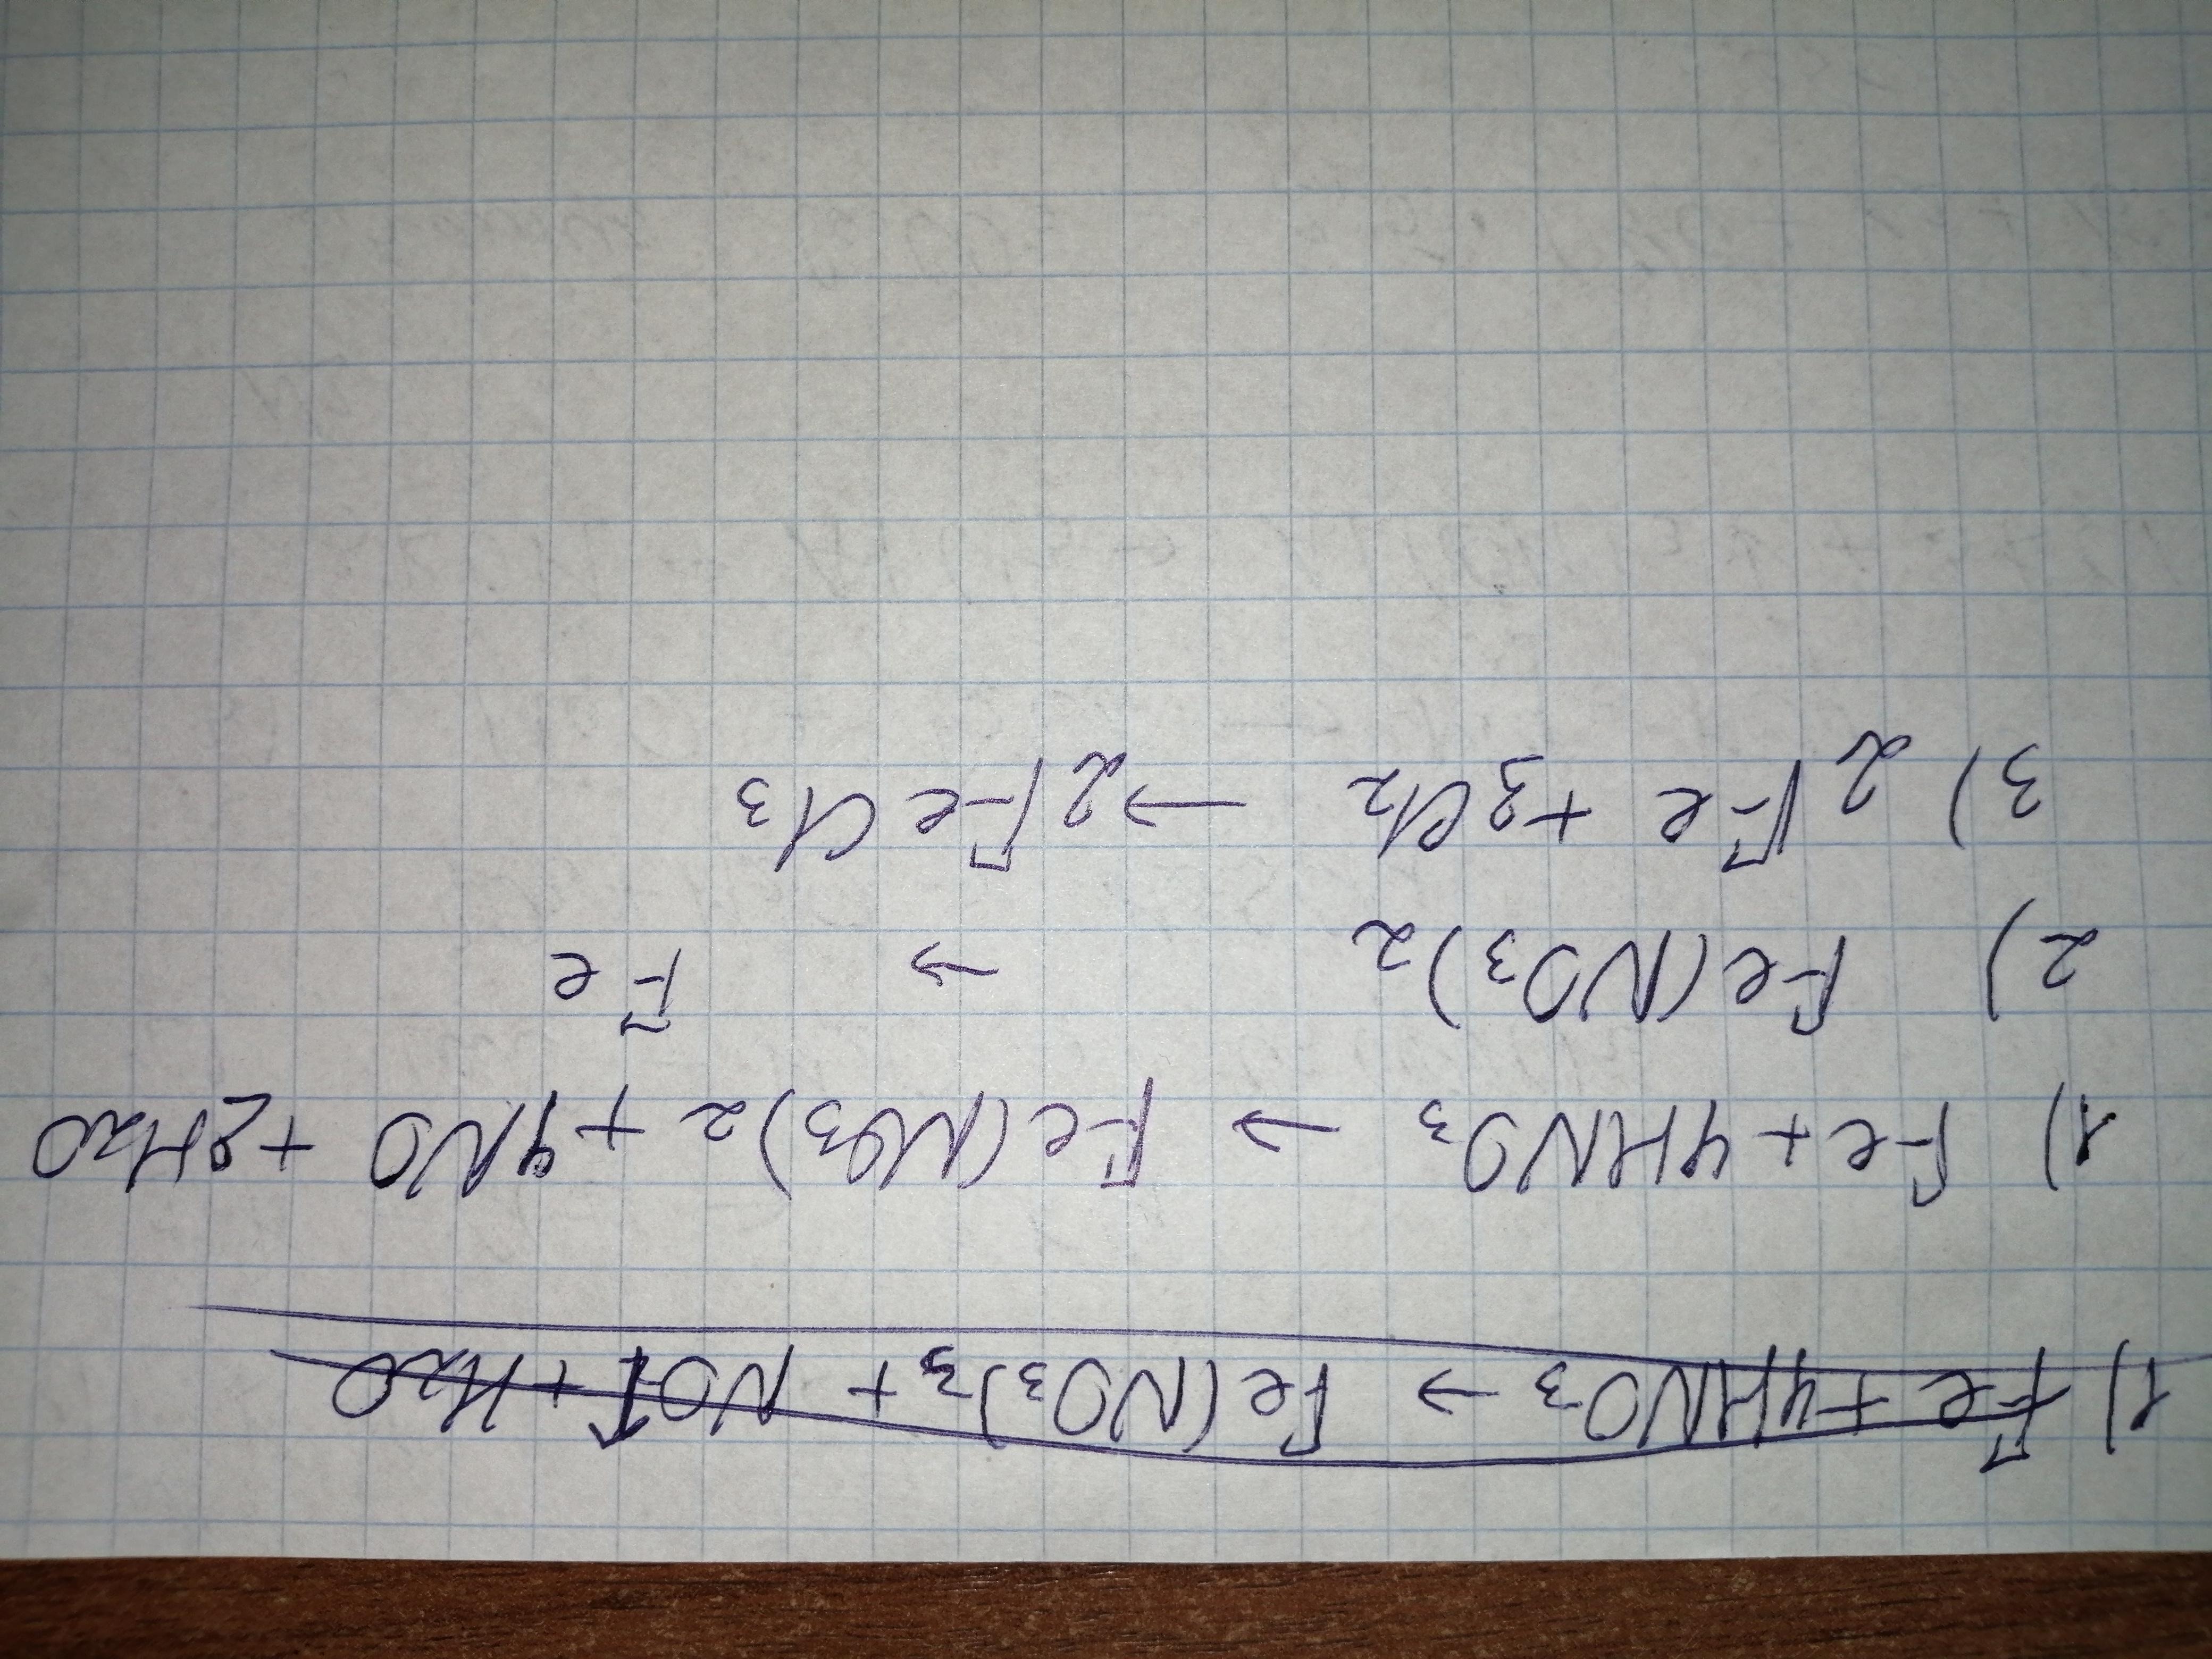 1) Fe + 4HNO3 → Fe(NO3)3 + NO↑ + H2O
1) Fe + 4HNO3 → Fe(NO3)2 + 4NO + 2H2O
2) Fe(NO3)2 → Fe
3) 2Fe + 3Cl2 → 2FeCl3